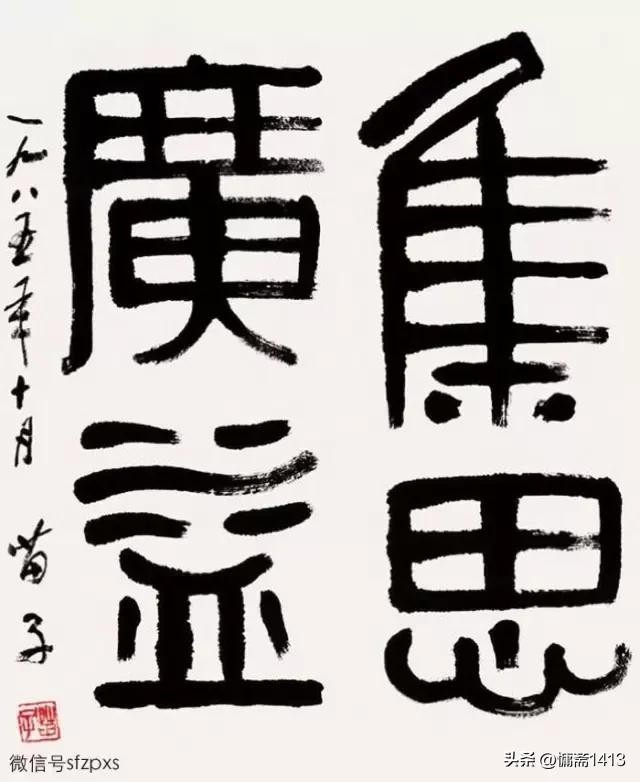 集思
廣益
一九八五年十月
苗子
微信号sfzpxs
头条 @慵斋1413